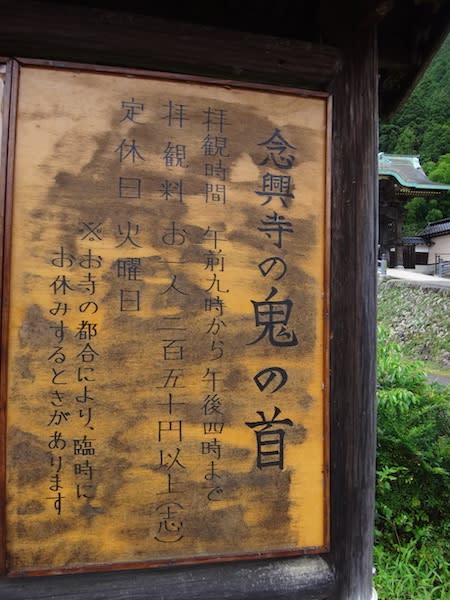 念興寺の鬼の首
拝観時間 午前九時から午後四時まで
拝観料 お一人 二百五十円以上(志)
定休日 火曜日
※お寺の都合により、臨時に
お休みするときがあります